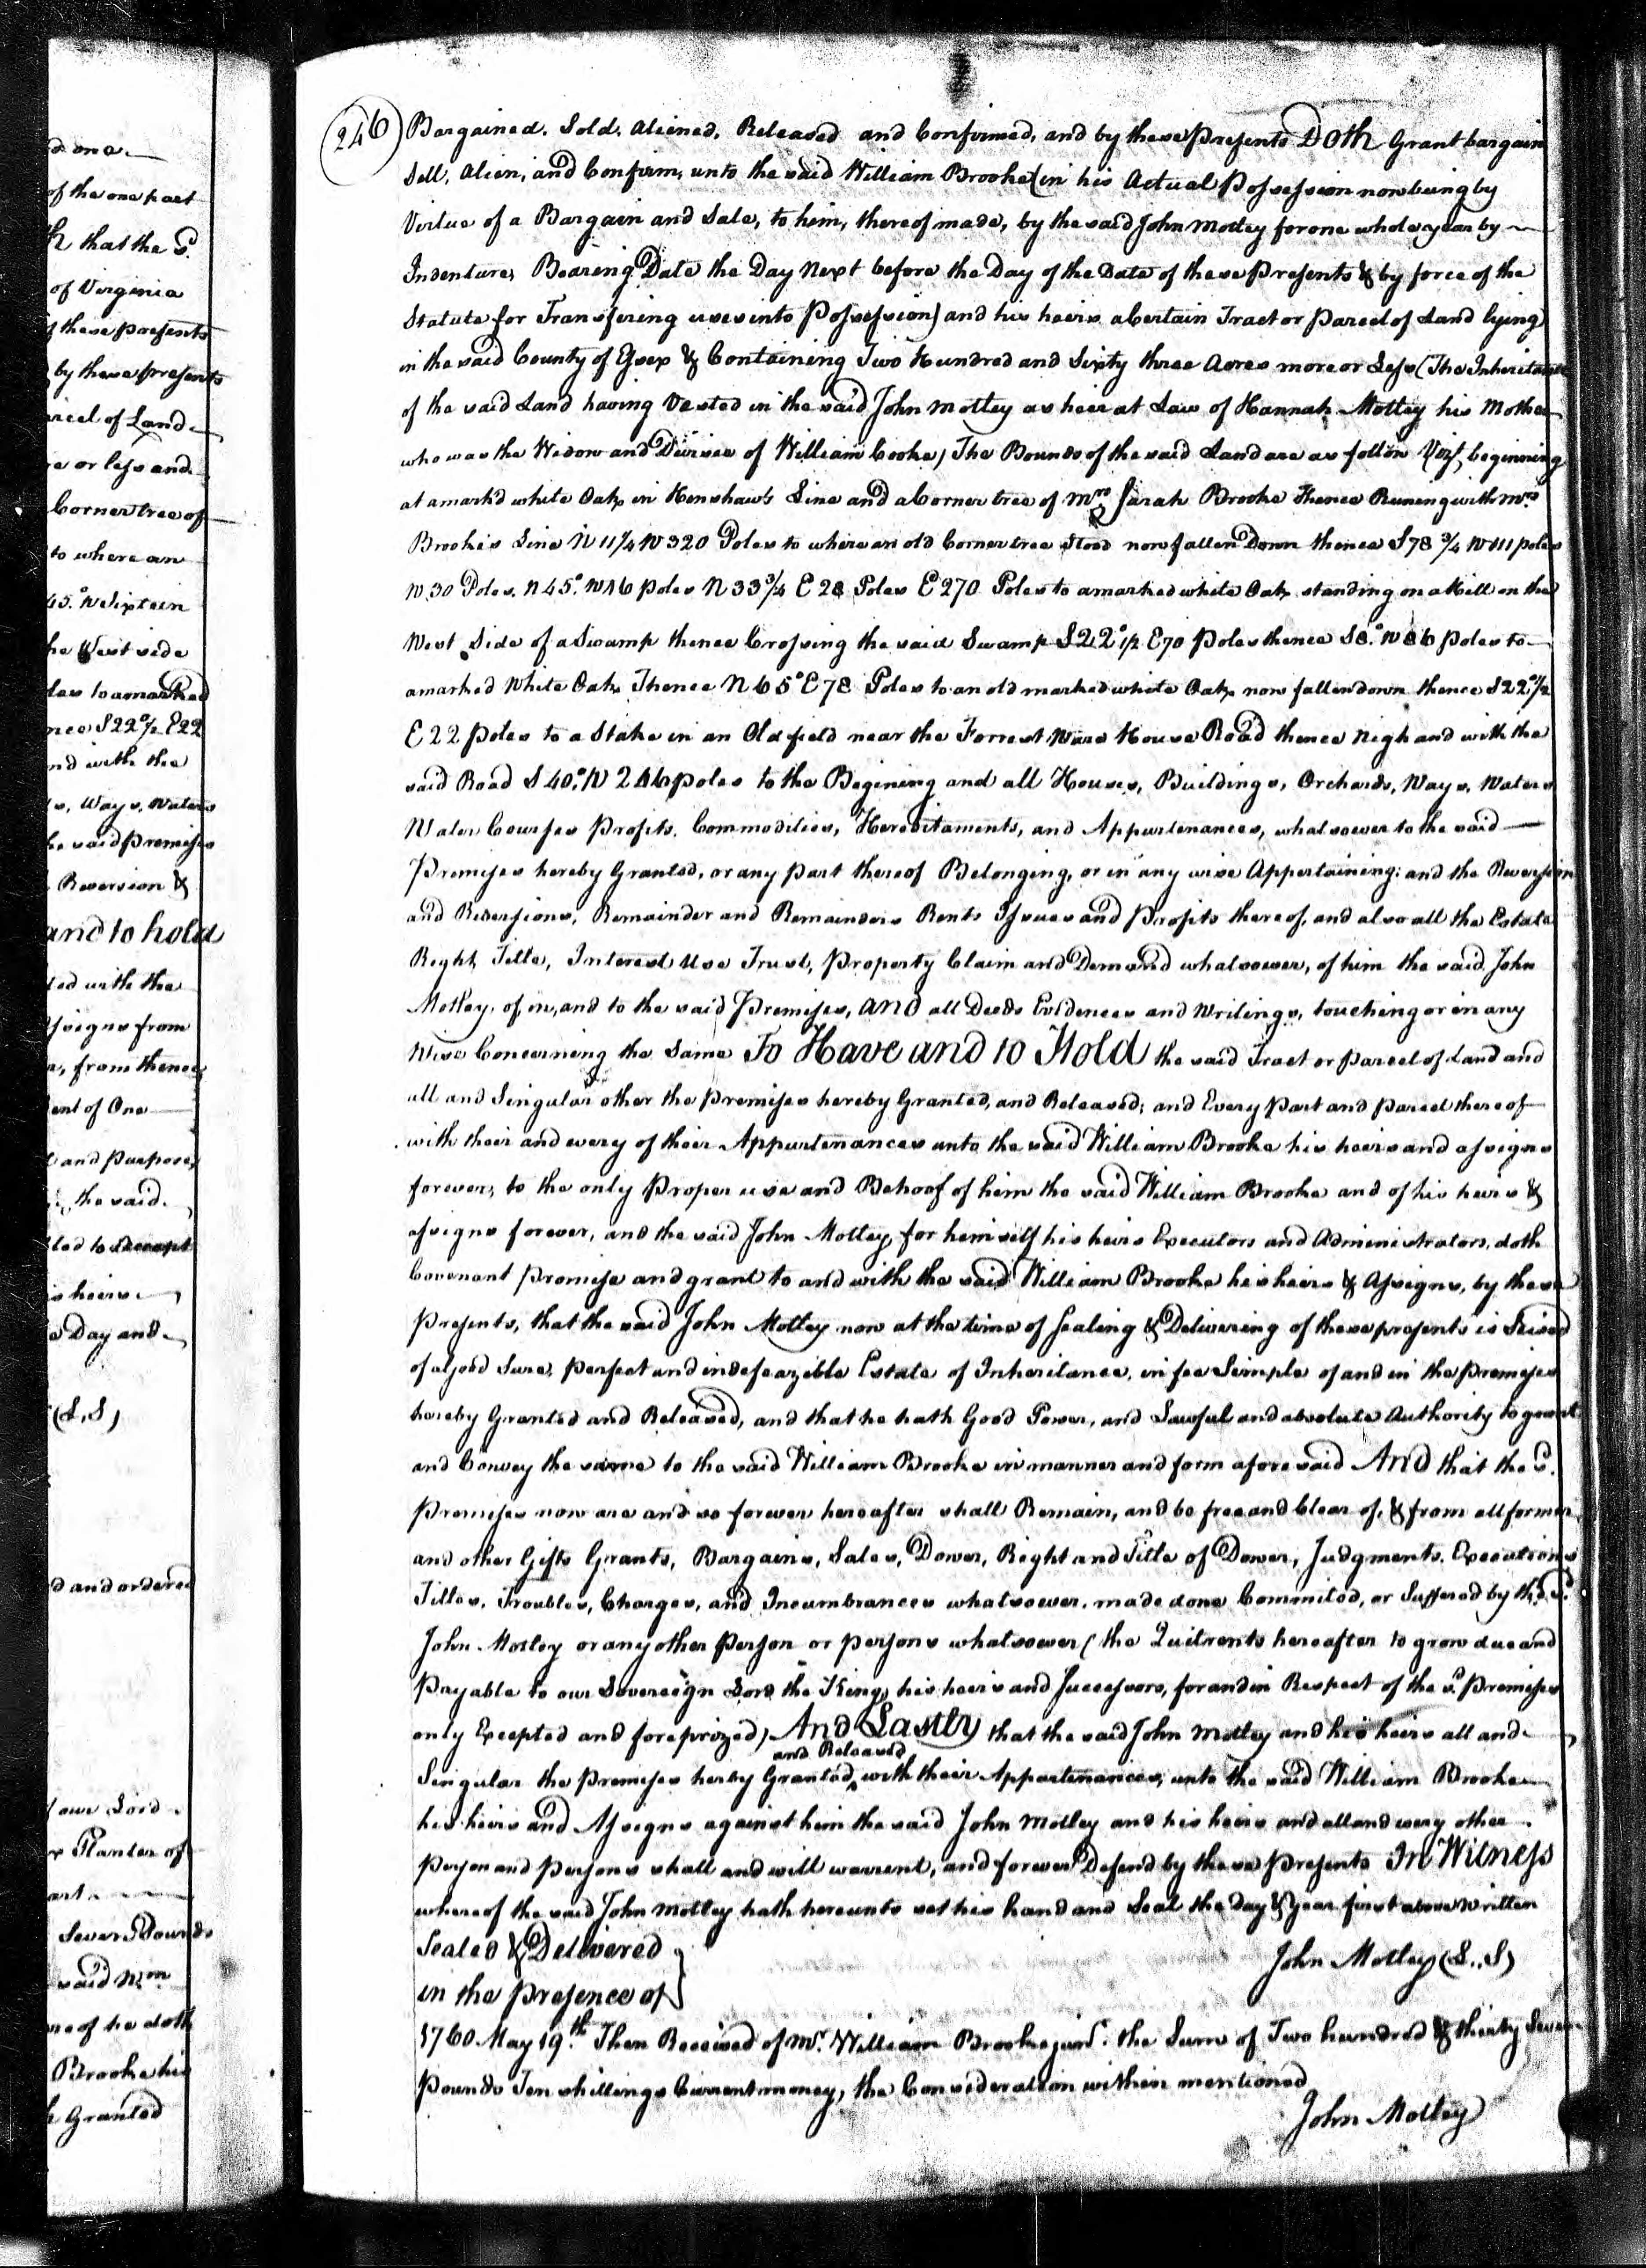 d one
of the one part
h that the sd.
of Virginia
f these presents
by these presents
rcel of Land
e or less and
Corner tree of
to where an
45.° W Sixteen
he West side
les to a marked
nce S22°1/2 E22
nd with the
s, Ways, Waters
he said Premisses
Reversion &
and to hold
ted with the
ssigns from
, from thence
ent of One
and Purpose,
the said
led to accept
s heirs
e Day and
(L.S)
d and ordered
f our Lord
r Planter of
art
Seven Pounds
said Wm
ne of he doth
Brooke his
h Granted
246
Bargained. Sold. Aliened. Released and Confirmed, and by these presents Doth Grant bargain
Sell, Alien, and Confirm, unto the said William Brooke (in his Actual Possession now being by
Virtue of a Bargain and Sale, to him, thereof made, by the said John Motley for one whole year by
Indenture, Bearing Date the Day Next before the Day of the Date of these presents & by force of the
Statute for Transfering uses into Possession) and his heirs a Certain Tract or Parcel of Land lying
in the said County of Essex & Containing Two Hundred and Sixty three Acres more or Less (The Inheritance
of the said Land having Vested in the said John Motley as heir at Law of Hannah Motley his Mother
who was the Widow and Divisee of William Cooke) The Bounds of the said Land are as follow Vizt, beginning
at a markd white Oak in Henshaws Line and a Corner tree of Mrs Sarah Brooke Thence Runing with Mrs
Brooke's Line N 11 1/4 W 320 Poles to where an old Corner tree Stood now fallen Down thence S78 3/4 W 111 poles
W. 30 Poles. N 45.° W 16 poles N 33 3/4 E 28 Poles E 270 Poles to a marked white Oak standing on a Hill on the
West Side of a Swamp thence Crossing the said Swamp S22°1/2 E70 Poles thence S8.° W 86 poles to
a marked White Oak Thence N 65° E 78 Poles to an old marked white Oak now fallen down thence S22°1/2
E 22 poles to a Stake in an Old field near the Forrest Ware House Road thence nigh and with the
said Road S 40.° W 246 poles to the Begining and all Houses, Buildings, Orchards, Ways, Waters
Water Courses Profits. Commodities, Hereditaments, and Appurtenances, whatsoever to the said
Premises hereby Granted, or any Part thereof Belonging, or in any wise Appertaining: and the Reversion
and Reversions, Remainder and Remainders Rents Issues and Profits thereof, and also all the Estate
Right, Title, Interest Use Trust, Property Claim and Demand whatsoever, of him the said John
Motley, of, in, and to the said Premises, and all Deeds Evidences and Writings, touching or in any
Wise Concerning the Same To Have and to Hold the said Tract or Parcel of Land and
all and Singular other the Premises hereby Granted, and Released; and Every Part and parcel thereof
with their and every of their Appurtenances unto the said William Brooke his heirs and assigns
forever, to the only Proper use and Behoof of him the said William Brooke and of his heirs &
assigns forever, and the said John Motley, for himself his heirs Executors and Administrators, doth
Covenant Promise and grant to and with the said William Brooke his heirs & Assigns, by these
Presents, that the said John Motley now at the time of Sealing & Delivering of these presents is Seised
of a Good Sure, Perfect and indefeazible Estate of Inheritance, in fee Simple of and in the Premises
hereby Granted and Released, and that he hath Good Power, and Lawful and absolute Authority to grant
and Convey the same to the said William Brooke in manner and form aforesaid And that the sd.
Premises now are and so forever hereafter shall Remain, and be free and Clear of, & from all former
and other Gifts Grants, Bargains, Sales, Dower, Right and Title of Dower, Judgments, Executions
Titles, Troubles, Charges, and Incumbrances whatsoever, made done Commited, or Suffered by the sd.
John Motley or any other Person or persons whatsoever (the Quitrents hereafter to grow due and
Payable to our Sovereign Lord the King, his heirs and Successors, for and in Respect of the sd. Premises
only Excepted and foreprized) And Lastly that the said John Motley and his heirs all and
and Released
Singular the Premises herby Granted, with their Appurtenances, unto the said William Brooke
his heirs and Assigns against him the said John Motley and his heirs and all and every other
Person and Persons shall and will warrent, and forever Defend by these Presents In Witness
whereof the said John Motley hath hereunto set his hand and Seal the Day & Year first above Written
Sealed & Delivered
John Motley (L.S)
in the Presence of
1760 May 19th. Then Received of Mr. William Brooke junr. the Sum of Two hundred & thirty Seven
Pounds Ten shillings Current money, the Consideration within mentioned
John Motley